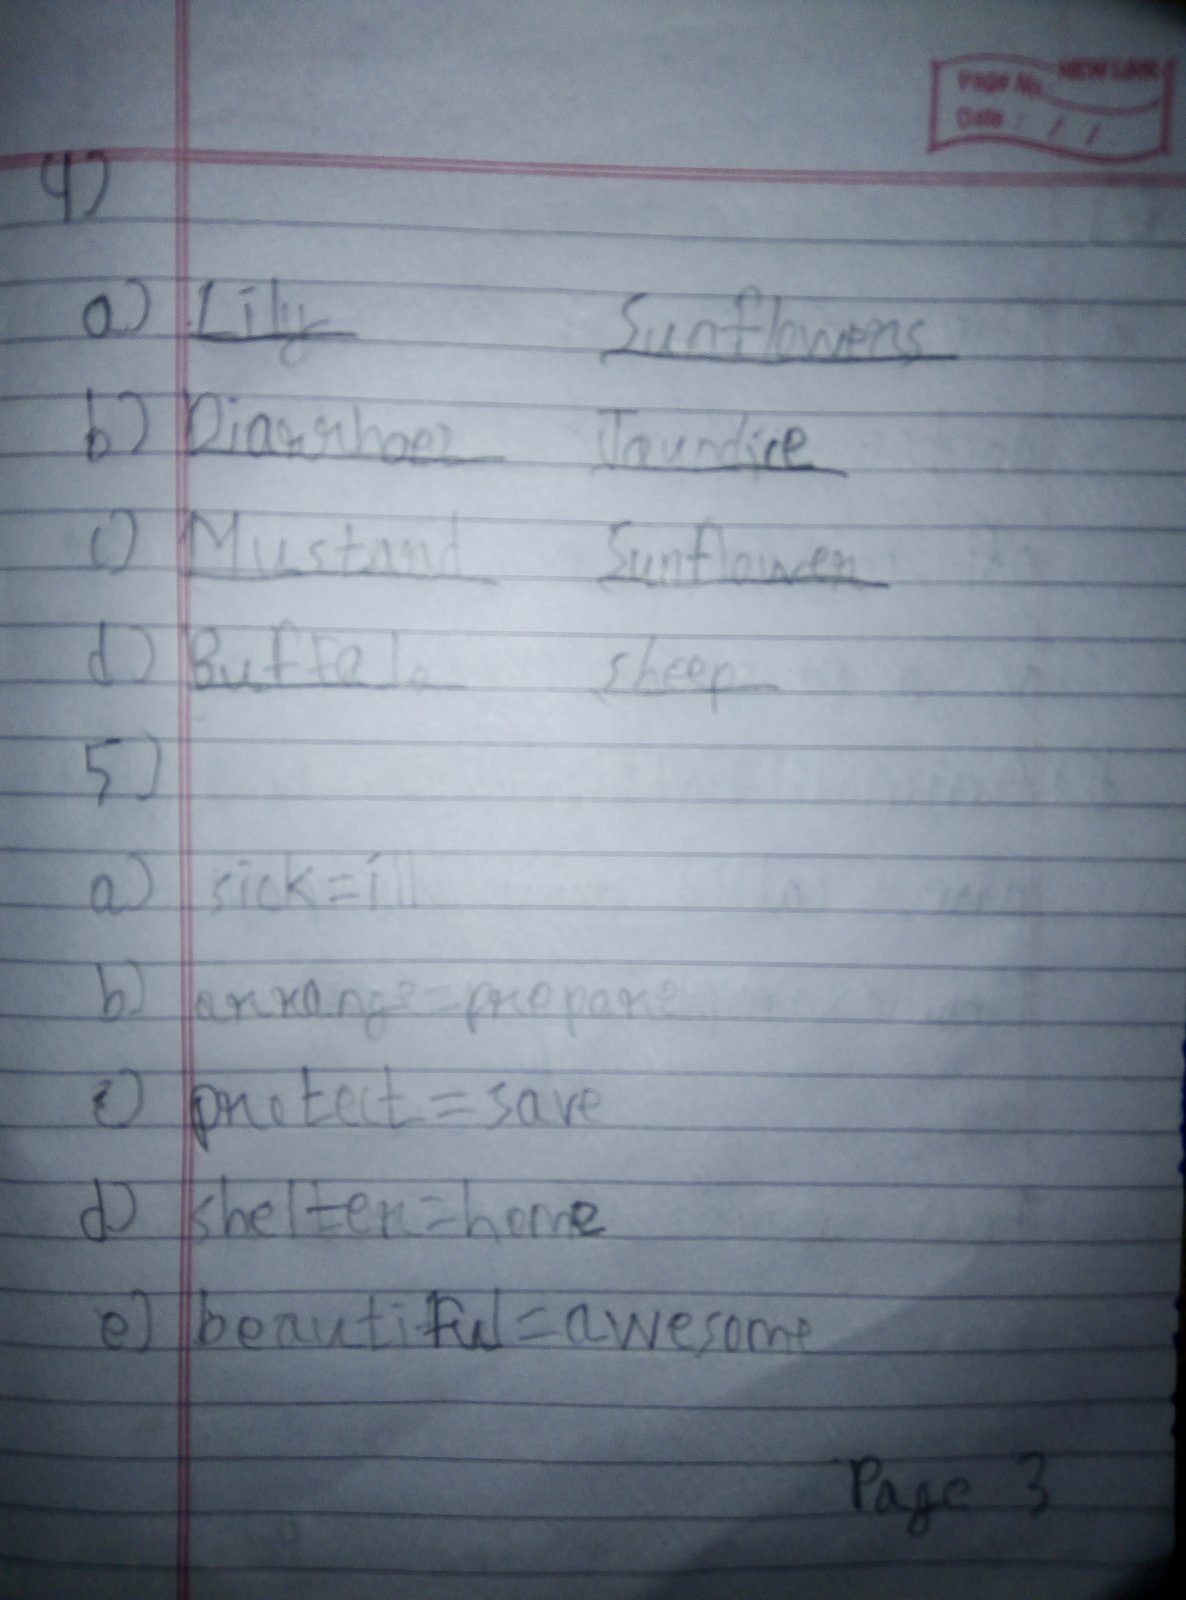 NEW LINK
Page No.:
Date : / /
4)
a) Lily Sunflowers
b) Diarrhoea Jaundice
c) Mustard Sunflower
d) Buffalo sheep
5)
a) sick=ill
b) arrange=prepare
c) protect=save
d) shelter=home
e) beautiful=awesome
Page 3